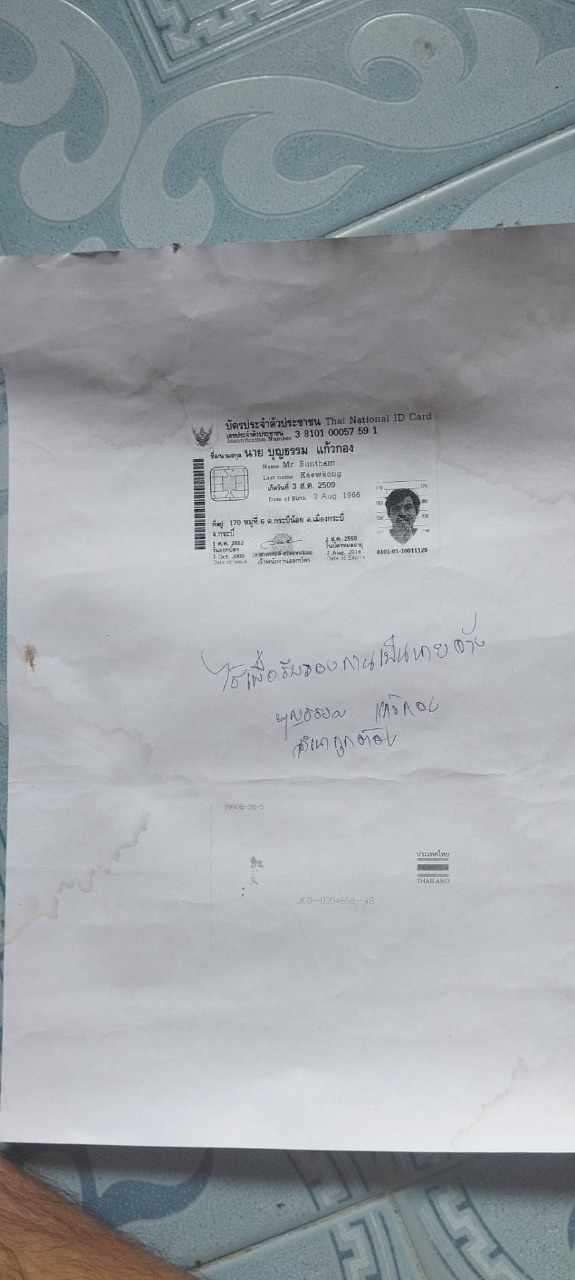 บัตรประจำตัวประชาชน Thai National ID Card
เลขประจำตัวประชาชน
Identification Number 3 8101 00057 59 1
ชื่อตัวและชื่อสกุล นาย บุญธรรม แก้วกอง
Name Mr. Buntham
Last name Kaewkong
เกิดวันที่ 3 ส.ค. 2509
Date of Birth 3 Aug. 1966
ที่อยู่ 170 หมู่ที่ 6 ต.กระบี่น้อย อ.เมืองกระบี่
จ.กระบี่
1 ต.ค. 2552
วันออกบัตร
1 Oct. 2009
Date of Issue
เจ้าพนักงานออกบัตร
2 ส.ค. 2559
วันบัตรหมดอายุ
2 Aug. 2016
Date of Expiry
8101-01-10011129
ใช้เพื่อรับรองการเป็นนายจ้าง
บุญธรรม แก้วกอง
สำเนาถูกต้อง
ประเทศไทย
THAILAND